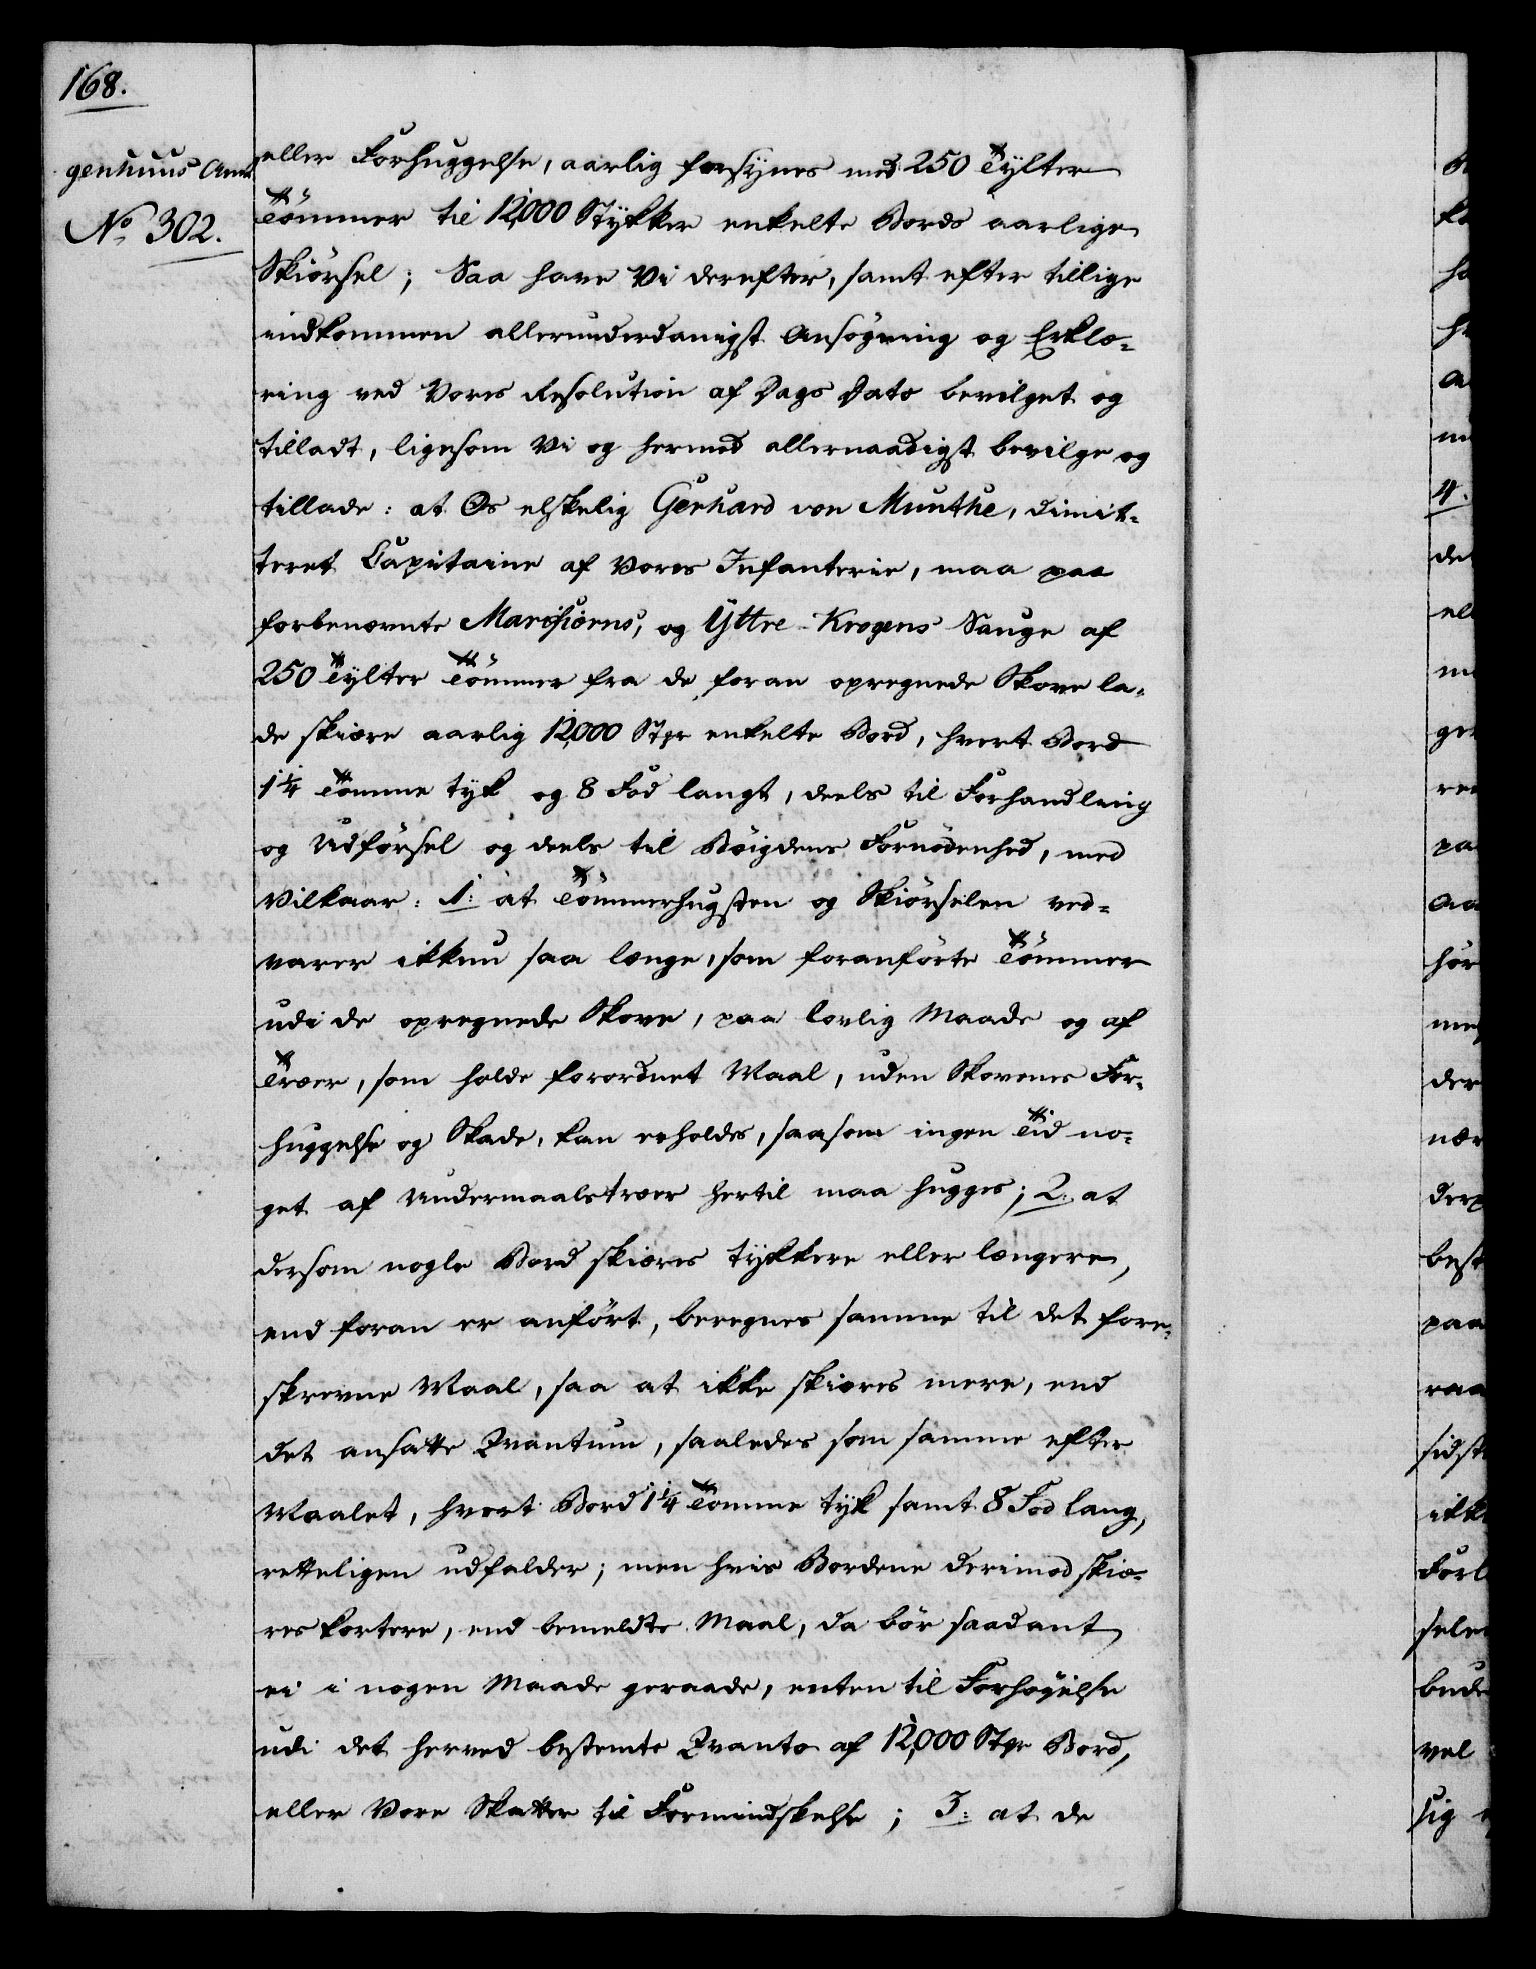 168.
No 302.
eller Forhuggelse, aarlig forsynes med 250 Tylter
Tömmer til 12,000 Stykker enkelte Bords aarlige
Skiörsel; Saa have Vi derefter, samt efter tillige
indkommen allerunderdanigst Ansögning og Erklæ-
ring ved Vores Resolution af Dags Dato bevilget og
tilladt, ligesom Vi og hermed allernaadigst bevilge og
tillade: at Os elskelig Gerhard von Munthe, dimit-
teret Capitaine af Vores Infanterie, maa paa
forbenævnte og Ÿttre-Krogens Sauge af
250 Tylter Tömmer fra de foran opregnede Skove la-
de skiære aarlig 12,000 Stkr enkelte Bord, hvert Bord
1¼ Tomme tyk og 8 Fod langt, deels til Forhandling
og Udförsel og deels til Böigdens Fornödenhed, med
Vilkaar: 1: at Tömmerhugsten og Skiörselen ved-
varer ikkun saa længe, som foranförte Tömmer
udi de opregnede Skove, paa lovlig Maade og af
Træer, som holde forordnet Maal, uden Skovenes For-
huggelse og Skade, kan erholdes, saasom ingen Tid no-
get af Undermaalstræer hertil maa hugges; 2: at
dersom nogle Bord skiæres tykkere eller længere,
end foran er anfört, beregnes samme til det fore-
skrevne Maal, saa at ikke skiæres mere, end
det ansatte Qvantum, saaledes som samme efter
Maalet, hvert Bord 1¼ Tomme tyk samt 8 Fod lang,
retteligen udfalder; men hvis Bordene derimod skiæ-
res kortere, end bemeldte Maal, da bör saadant
ei i nogen Maade geraade, enten til Forhöyelse
udi det herved bestemte Qvanto af 12,000 Stkr Bord,
eller Vore Skatter til Formindskelse; 3: at de
4.